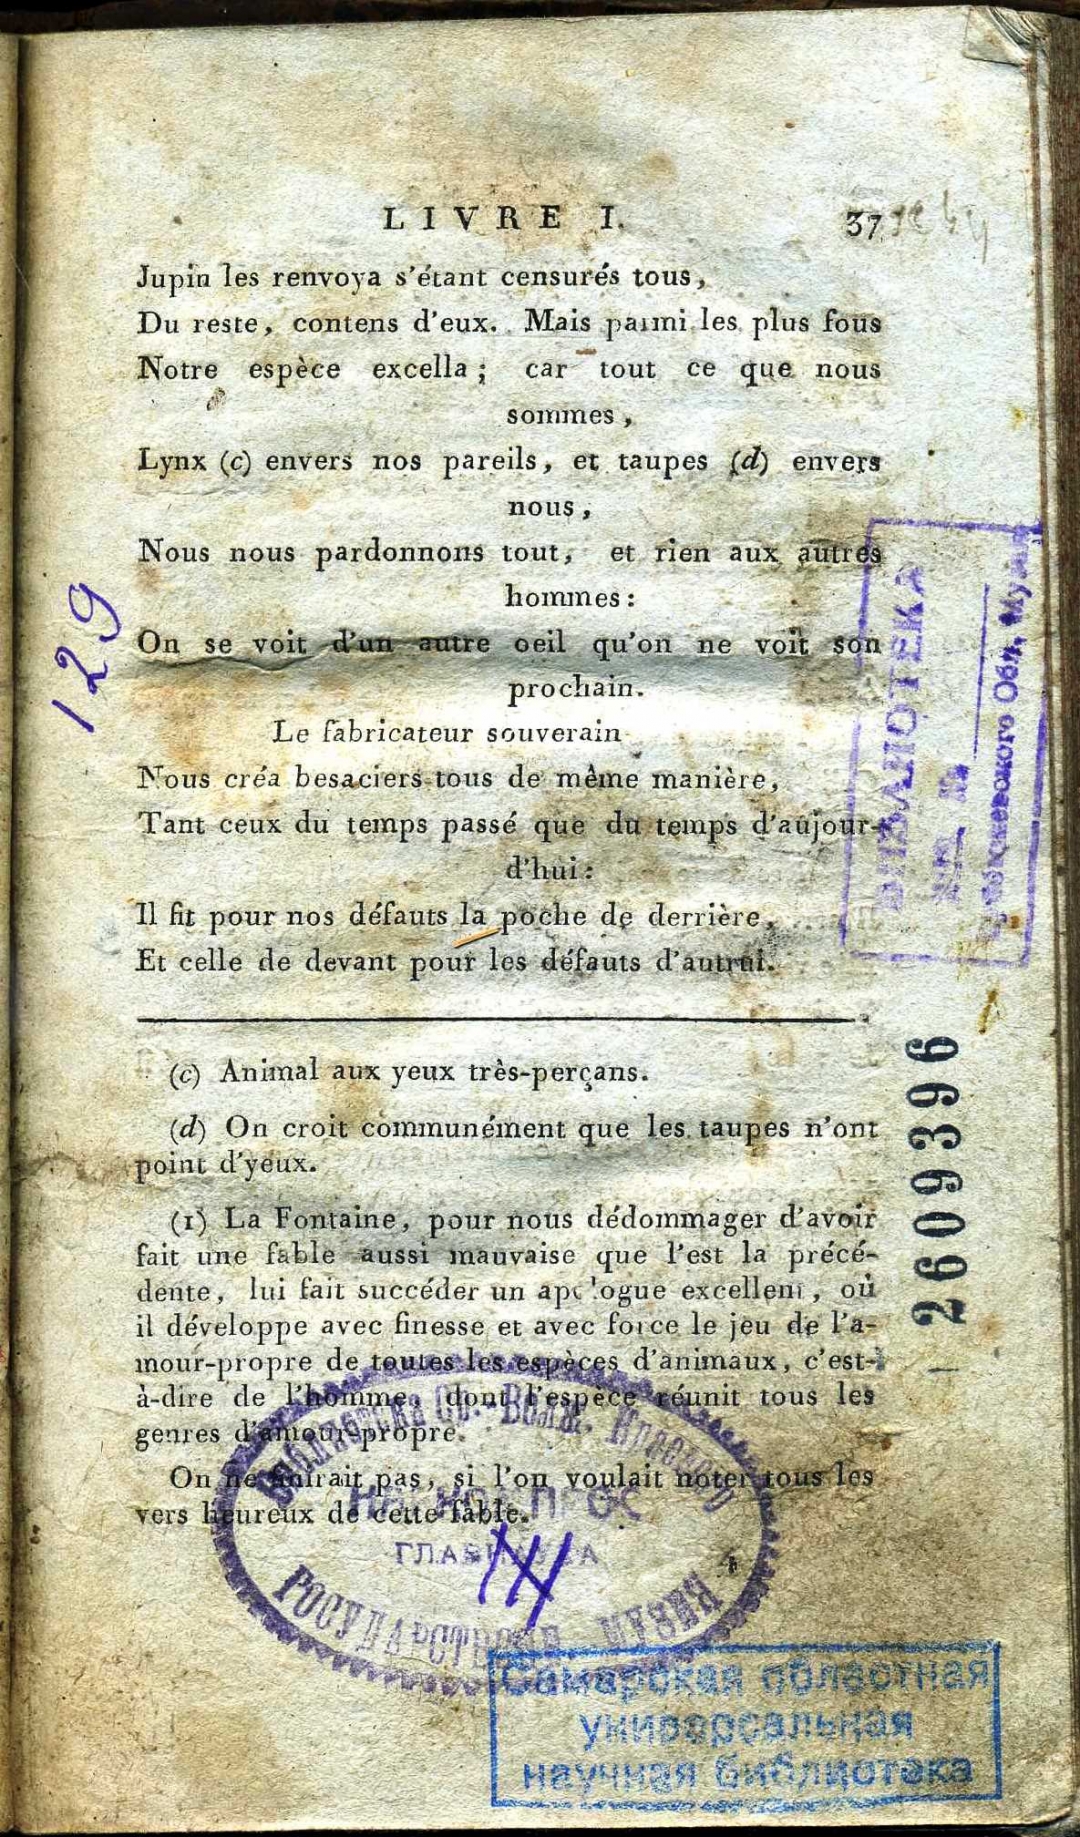 LIVRE I. 37
Jupin les renvoya s'étant censurés tous,
Du reste, contens d'eux. Mais parmi les plus fous
Notre espèce excella ; car tout ce que nous
sommes,
Lynx (c) envers nos pareils, et taupes (d) envers
nous,
Nous nous pardonnons tout, et rien aux autres
hommes :
On se voit d'un autre oeil qu'on ne voit son
prochain.
Le fabricateur souverain
Nous créa besaciers tous de même manière,
Tant ceux du temps passé que du temps d'aujour-
d'hui :
Il fit pour nos défauts la poche de derrière,
Et celle de devant pour les défauts d'autrui.
(c) Animal aux yeux très-perçans.
(d) On croit communément que les taupes n'ont
point d'yeux.
(1) La Fontaine, pour nous dédommager d'avoir
fait une fable aussi mauvaise que l'est la précé-
dente, lui fait succéder un apologue excellent, où
il développe avec finesse et avec force le jeu de l'a-
mour-propre de toutes les espèces d'animaux, c'est-
à-dire de l'homme, dont l'espèce réunit tous les
genres d'amour-propre.
On ne finirait pas, si l'on voulait noter tous les
vers heureux de cette fable.
129
БИБЛИОТЕКА
Обл. Музея
2609396
ГЛАВНАУКА
Самарская областная
универсальная
научная библиотека